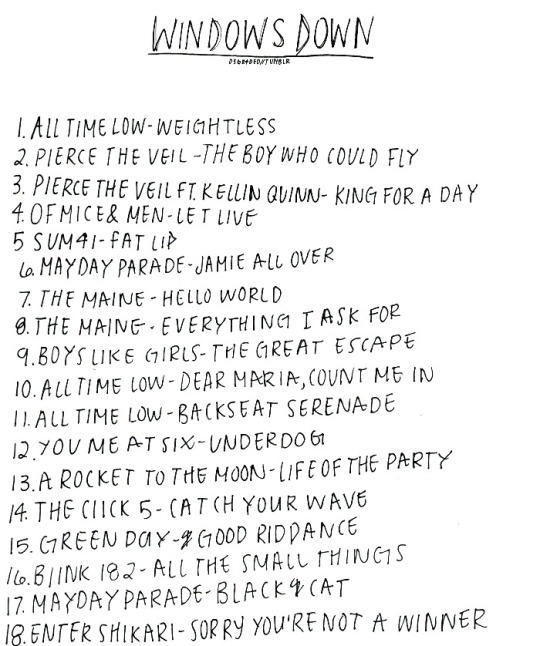 WINDOWS DOWN
1. ALL TIME LOW-WEIGHTLESS
2. PIERCE THE VEIL -THE BOY WHO COULD FLY
3. PIERCE THE VEIL FT. KELLIN QUINN- KING FOR A DAY
4. OF MICE & MEN-LET LIVE
5 SUM41-FAT LIP
6. MAYDAY PARADE-JAMIE ALL OVER
7. THE MAINE - HELLO WORLD
8. THE MAINE - EVERYTHING I ASK FOR
9. BOYS LIKE GIRLS-THE GREAT ESCAPE
10. ALL TIME LOW-DEAR MARIA, COUNT ME IN
11. ALL TIME LOW-BACKSEAT SERENADE
12. YOU ME AT SIX-UNDERDOG
13. A ROCKET TO THE MOON-LIFE OF THE PARTY
14. THE CLICK 5- CATCH YOUR WAVE
15. GREEN DAY- GOOD RIDDANCE
16. BLINK 182- ALL THE SMALL THINGS
17. MAYDAY PARADE-BLACK CAT
18. ENTER SHIKARI-SORRY YOU'RE NOT A WINNER